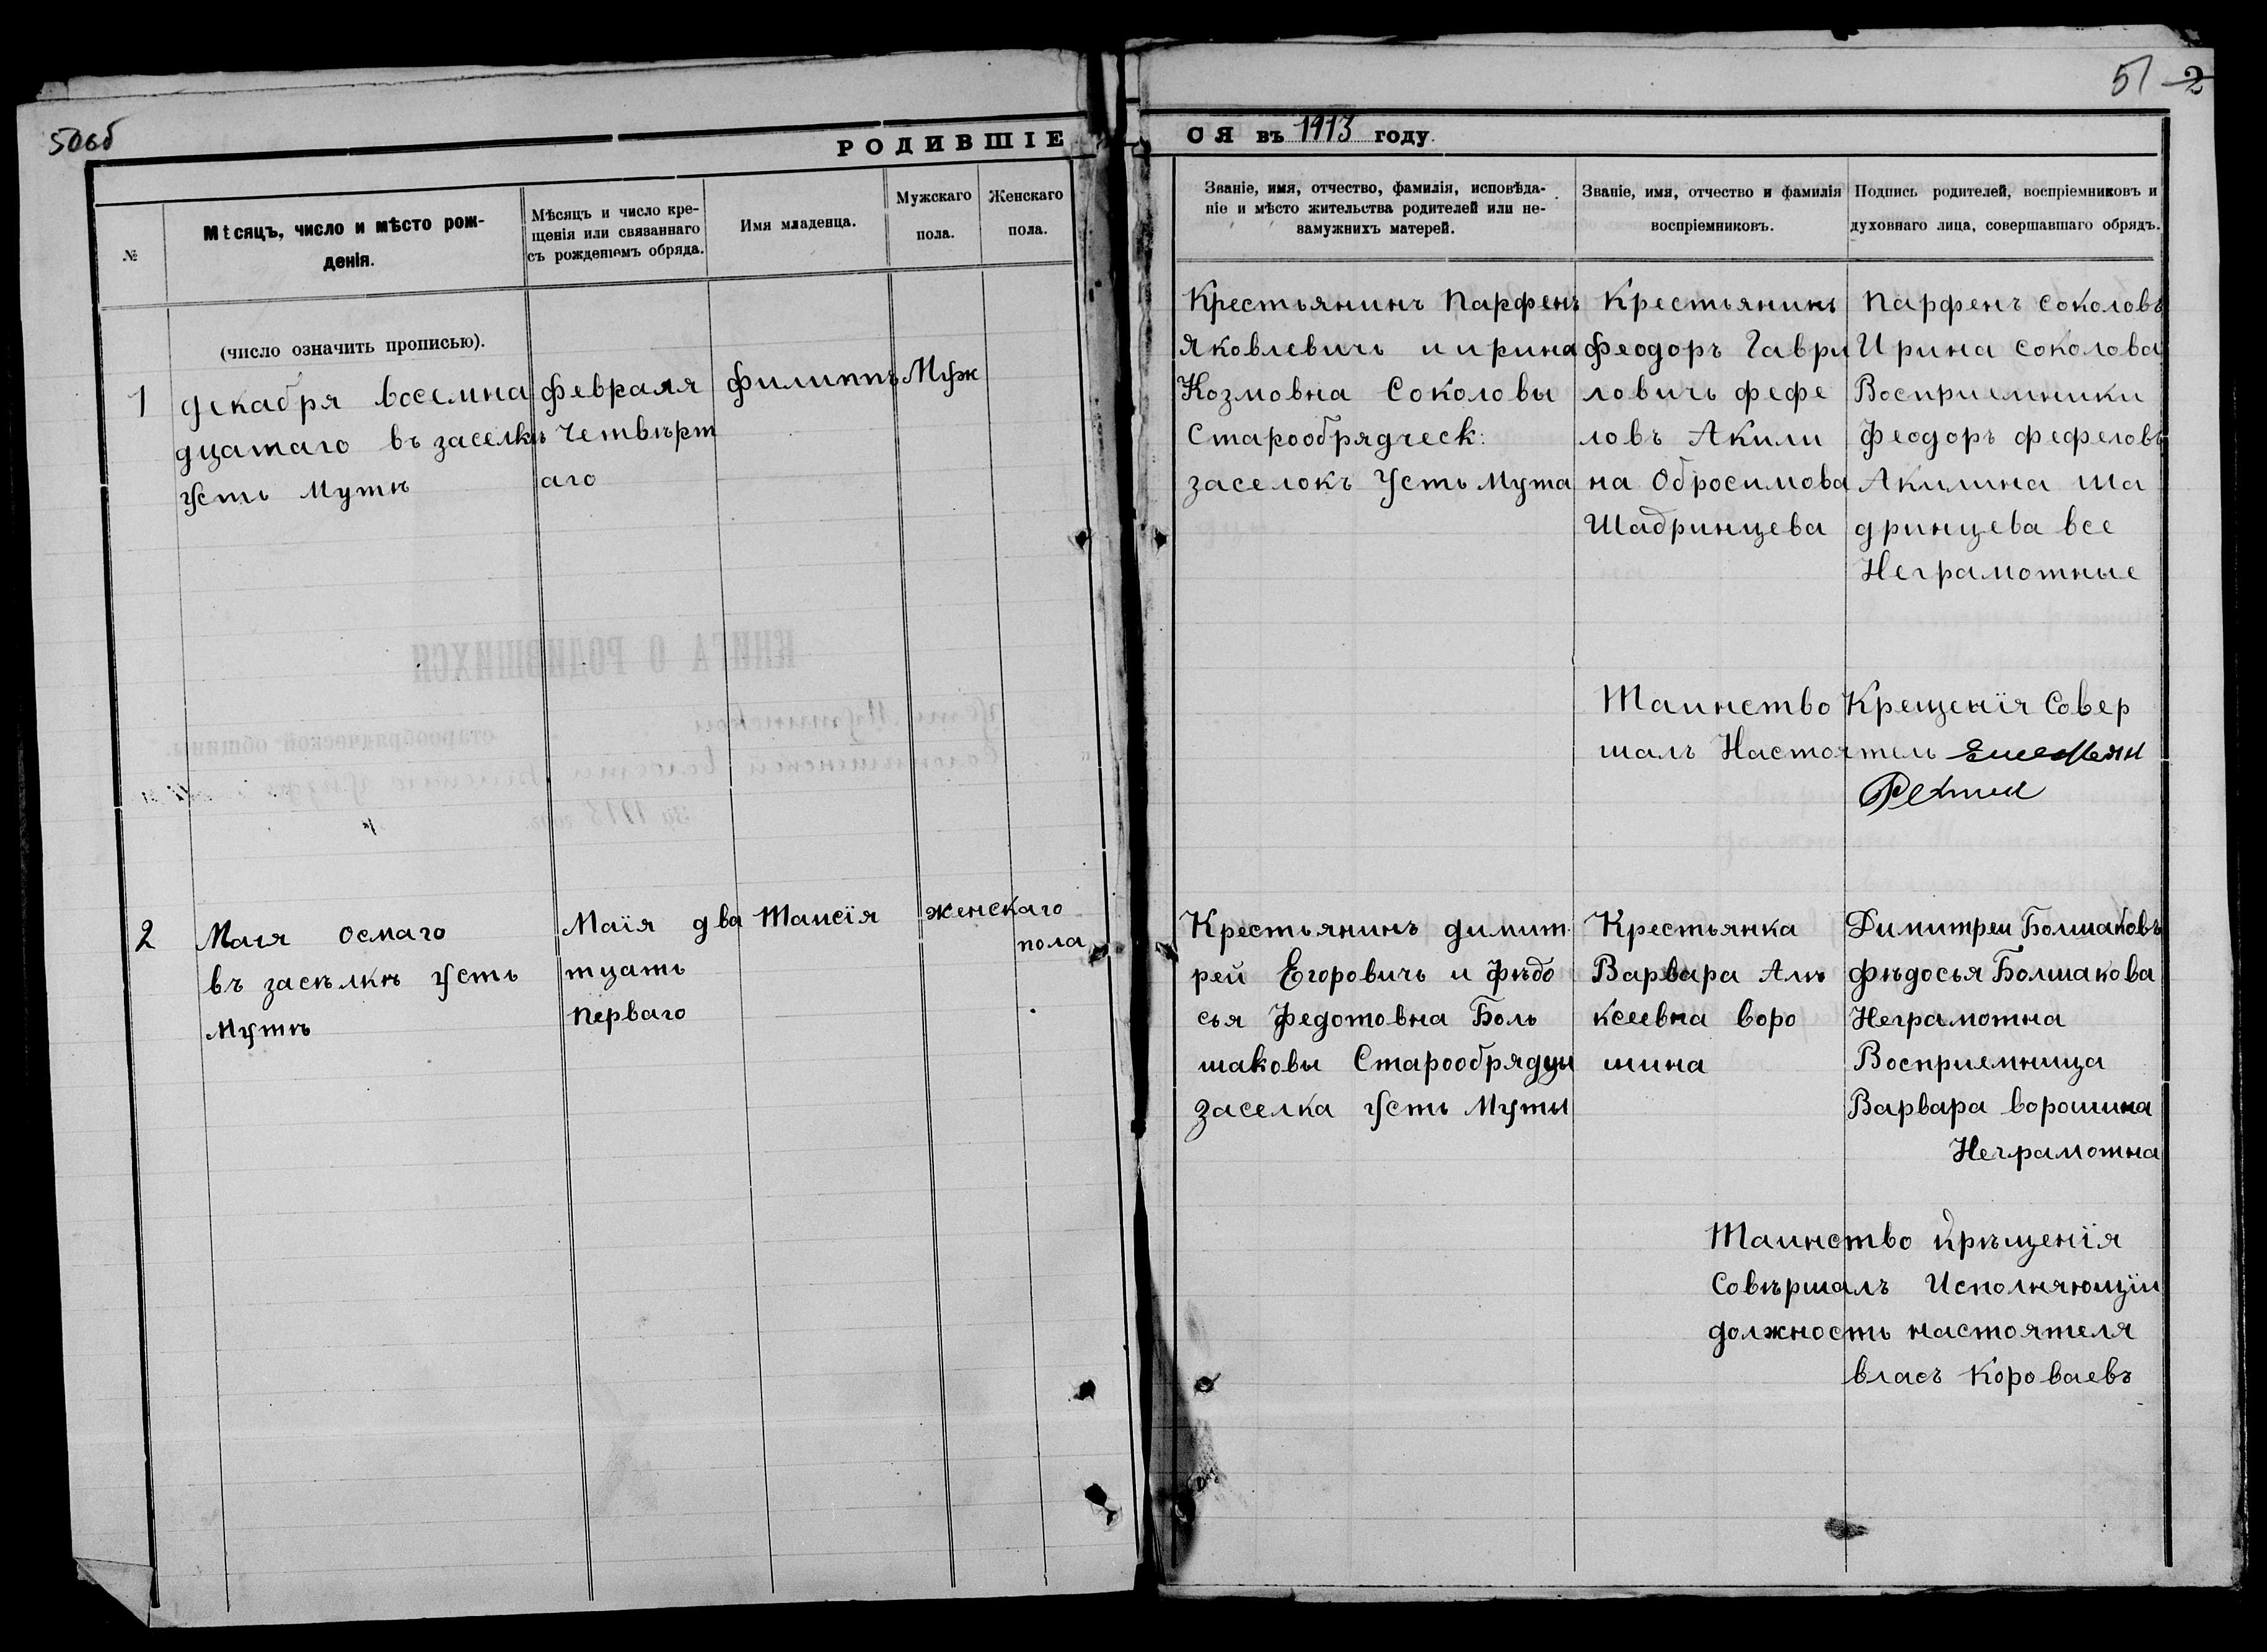 50об
51 2
РОДИВШІЕ
СЯ въ 1913 году.
№
Мѣсяцъ, число и мѣсто рож-
денія.
(число означить прописью).
Мѣсяцъ и число кре-
щенія или связаннаго
съ рожденіемъ обряда.
Имя младенца.
Мужскаго
пола.
Женскаго
пола.
Званіе, имя, отчество, фамилія, исповѣда-
ніе и мѣсто жительства родителей или не-
замужнихъ матерей.
Званіе, имя, отчество и фамилія
воспріемниковъ.
Подпись родителей, воспріемниковъ и
духовнаго лица, совершавшаго обрядъ.
1
декабря восемна
дцатаго въ заселкѣ
Усть Мутѣ
февраля
Четвѣрт
аго
филиппъ
Муж
Крестьянинъ Парфенъ
Яковлевичь и ирина
Козмовна Соколовы
Старообрядческ:
заселокъ Усть Мута
Крестьянинъ
Феодоръ Гаври
ловичь фефе
ловъ Акили
на Обросимова
Шадринцева
Парфенъ соколовъ
Ирина соколова
Восприемники
Феодоръ фефеловъ
Акилина Ша
дринцева все
Неграмотные
Таинство Крещенія Совер
шалъ Настоятель
2
Мая осмаго
въ засѣлкѣ Усть
Мутѣ
Маія два
тцать
перваго
Таисія
женскаго
пола
Крестьянинъ димит
рей Егоровичь и Фѣдо
сья Федотовна Боль
шаковы Старообрядцы
заселка Усть Муты
Крестьянка
Варвара Алѣ
ксеевна воро
шина
Димитреи Болшаковъ
фѣдосья Болшакова
Неграмотна
Восприемница
Варвара ворошина
Неграмотна
Таинство крѣщенія
Совѣршалъ Исполняющіи
должность настоятеля
власъ Короваевъ